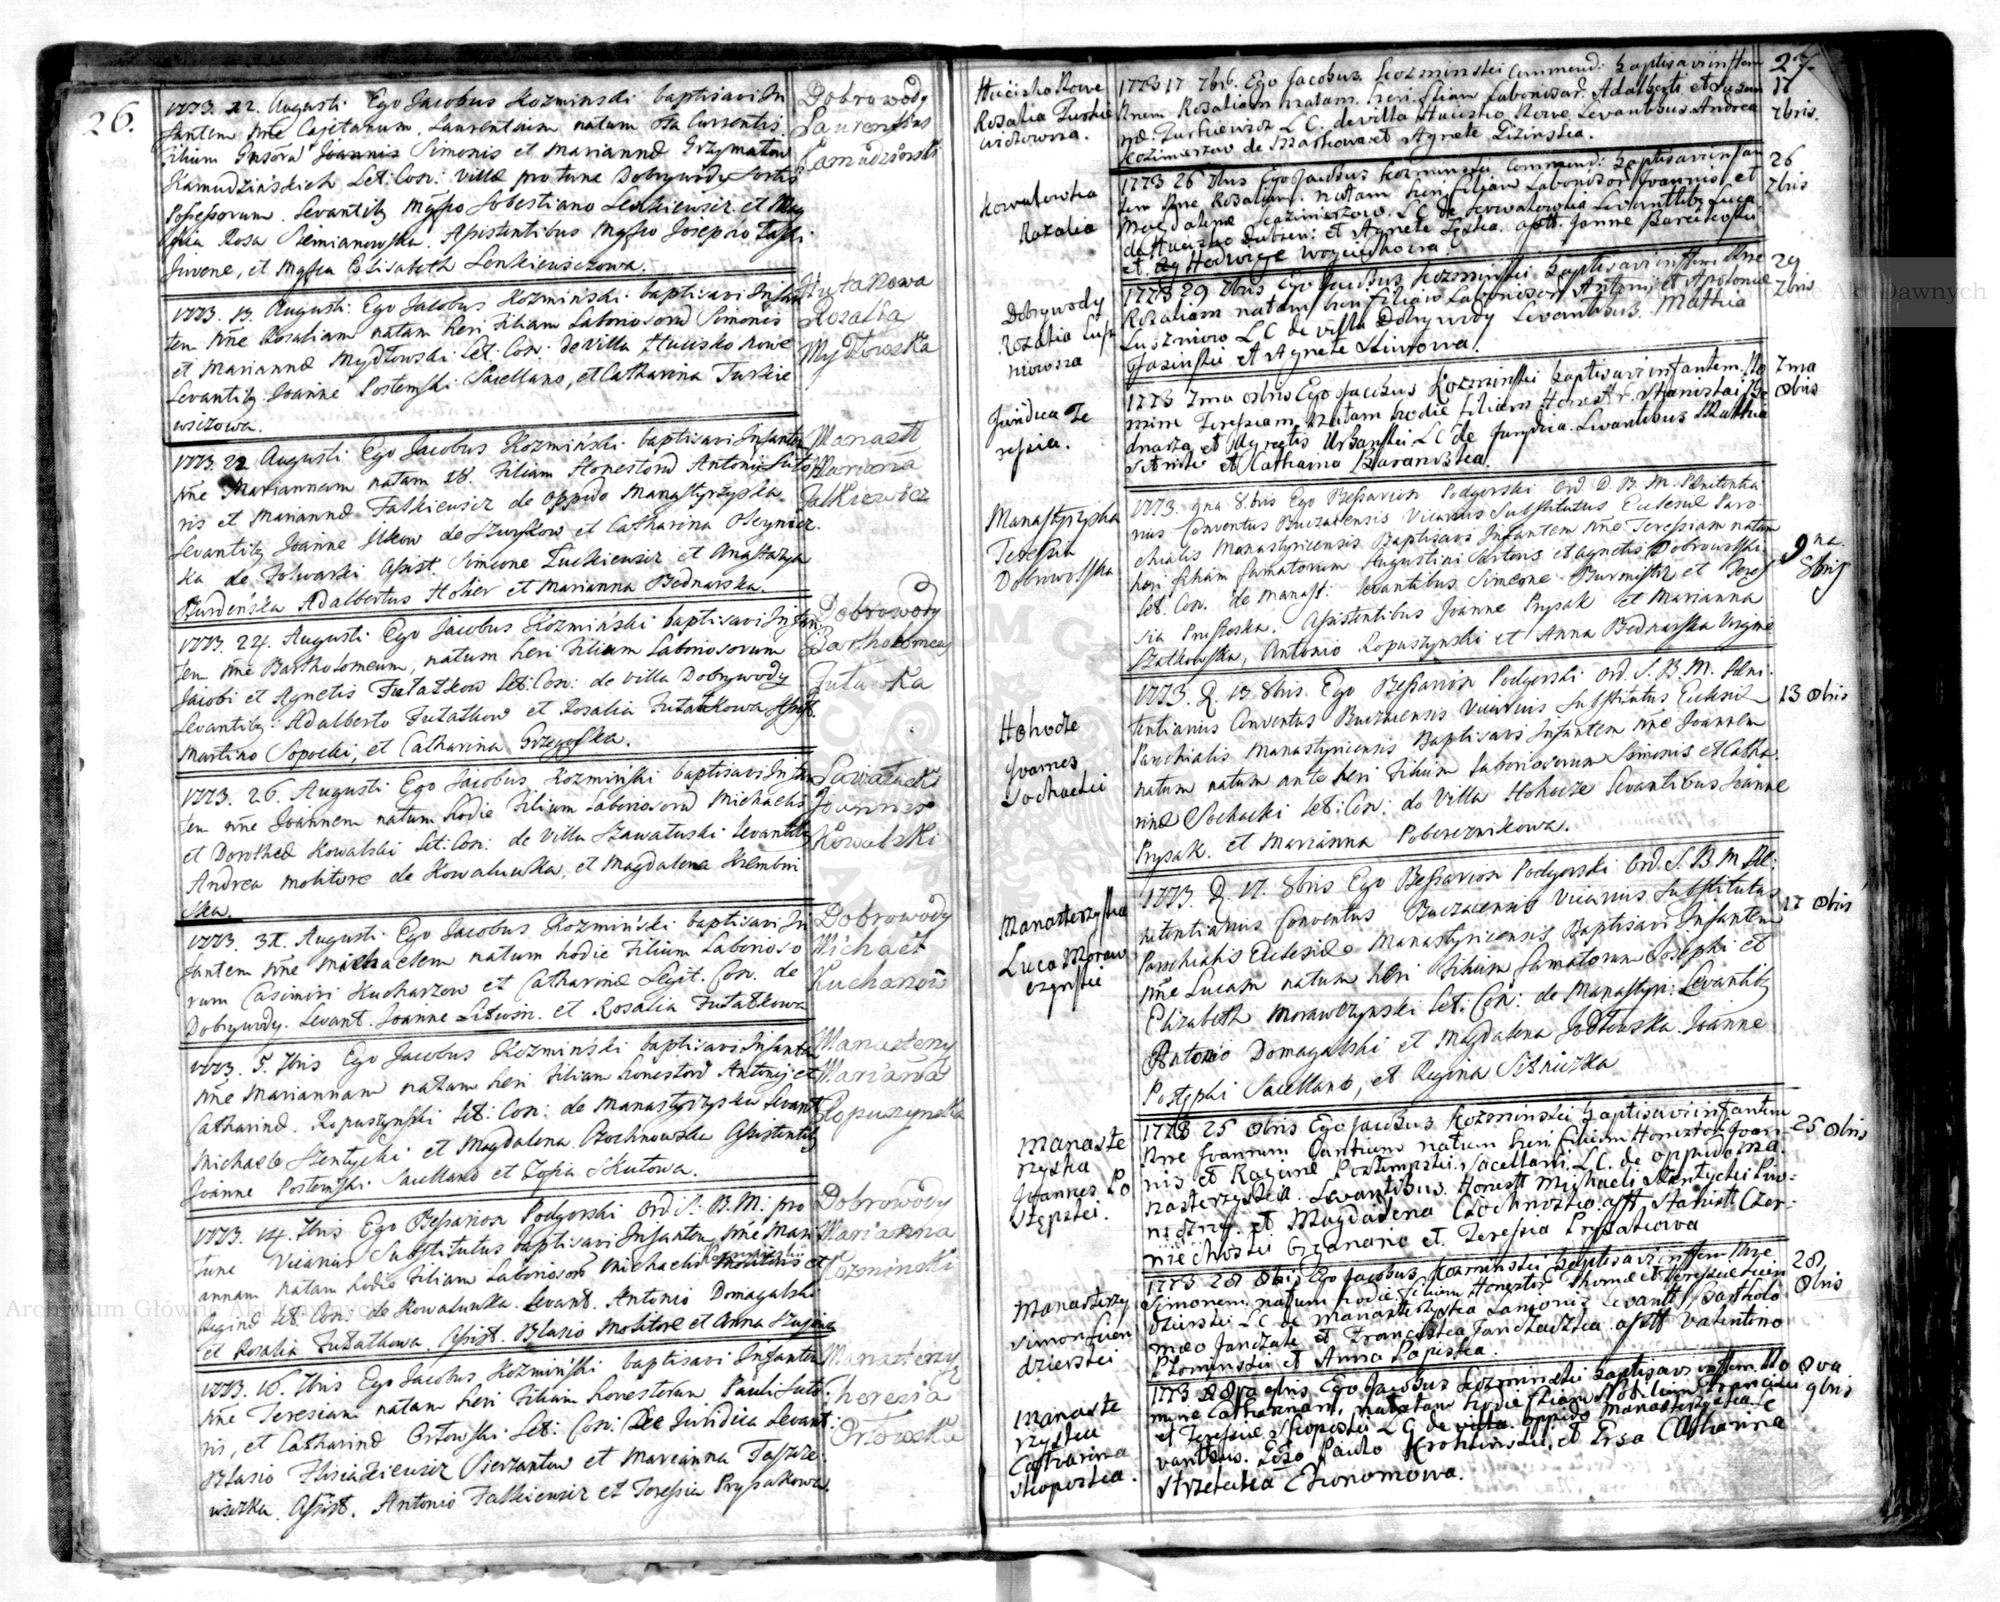 26.
1773. 22. Augusti. Ego Jacobus Kozminski baptisavi In
fantem nne Cajetanum, Laurentium natum Currentis
filium Simonis et Mariannæ Grzymałow
Kamudzińskich Leg: Con: Villæ pro tunc Dobrywody Sortis
Possessorum. Levantib9 Mgfco Sebestiano Lenkiewicz et
Rosa Siemianowska. Assistentibus Mgfco Josepho
Juvene, et Mgfca Elisabeth Lenkiewiczowa.
Dobrowody
Laurentius
Kamudziński
1773. 13. Augusti. Ego Jacobus Kozminski baptisavi Infan
tem nne Rosaliam natam heri filiam Laboriosoru Simonis
et Mariannæ Mydłowski Let: Con: de villa Hucisko Nowe
Levantib9 Joanne Postemski Sacellano, et Catharina Turkie
wiczowa.
Huta Nowa
Rosalia
Mydłowska
1773. 22 Augusti Ego Jacobus Kozminski baptisavi Infantem
nne Mariannam natam 18. filiam Honestoru Antonij Suto
ris et Mariannæ Falkiewicz de oppido Manastyrzyska.
Levantib9 Joanne Ilkow de et Catharina
ka de Folwarki Assist. Simeone Luckiewicz et Anastazya
Adalbertus Hober et Marianna Bednarska.
Manast
Marianna
Falkiewicz
1773. 24. Augusti Ego Jacobus Kozminski baptisavi Infan
tem nne Bartholomeum, natum heri filium Laboriosorum
Jacobi et Agnetis Futałkow Let: Con: de villa Dobrywody
Levantib9 Adalberto Futałkow et Rosalia Futałkowa Assist.
Martino Sopocki, et Catharina Grzegorska.
Dobrowody
Bartholomeus
Futalska
1773. 26. Augusti Ego Jacobus Kozminski baptisavi Infan
tem nne Joannem natum hodie filium Laboriosoru Michaelis
et Dorotheæ Kowalski Let: Con: de villa Szawałuski Levantib9
Andrea Molitore de Kowaluwka, et Magdalena
ska.
Sawałuski
Joannes
Kowalski
1773. 31. Augusti Ego Jacobus Kozminski baptisavi In
fantem nne Michaelem natum hodie filium Laborioso
rum Casimiri Kucharzow et Catharinæ Legit. Con. de
Dobrywody. Levant. Joanne Litwin. et Rosalia Futałkowa
Dobrowody
Michael
Kucharow
1773. 5. 7bris Ego Jacobus Kozminski baptisavi Infante
nne Mariannam natam heri filiam honestoru Antonij et
Catharinæ Ropuszynski Let: Con: de Manastyrzyska Levant
Michaele Szentycki et Magdalena Czochnowska Assistentib9
Joanne Postemski Sacellano et Zofia Skutowa.
Manastery
Marianna
Ropuszynska
1773. 14. 7bris Ego Bessarion Podgorski Ord. S. B. M. pro
tunc Vicarius Substitutus baptisavi Infantem nne Mari
annam natam hodie filiam Laboriosoru Michaelis Kozminski Molitoris et
Reginæ Let: Con: de Kowaluwka. Levant. Antonio Domagalski
et Rosalia Futałkowa. Assist. Blasio Molitore et Anna
Dobrowody
Marianna
Kozminski
1773. 16. 7bris Ego Jacobus Kozminski baptisavi Infantem
nne Teresiam natam heri filiam honestorum Pauli Suto
ris, et Catharinæ Ortowski Let: Con: de Juridica Levant:
Blasio et Marianna
wiczka. Assist. Antonio Falkiewicz et Teressia Prysakowa.
Manasterzy
Theresia
Ortowska
27.
Hucisko Nowe
Rosalia Turkie
wiczowna.
1773 17 7bris. Ego Jacobus Kozminski Commend: baptisavi inftem
Nnem Rosaliam natam. heri. filiam Laboriosor: Adalberti et Susan
næ Turkiewicz L C: de villa Huciska Nowe. Levantibus Andrea
Kozimierzow de et Agnete
17
7bris.
Kowalowka
Rozalia
1773 26 7bris Ego Jacobus Kozminski Commend: baptisavi infan
tem Nne Rosaliam. natam heri filiam Laboriosor: Joannis et
Magdalenæ Kazimierzow. L C de Kowalowka Levantib9 Luca
de Huciska et Agnete asst. Joanne
et Hedwige Woyciechowa.
26
7bris
Dobrywody
Rozalia Lusz
niowna
1773 29 7bris Ego Jacobus Kozminski baptisavi inftem Nne
Rozaliam natam heri filiam Laborisor Antonij et Apoloniæ
Luszniow L C de villa Dobrywody Levantibus. Mathia
Jasinski et Agnete Litwinowa.
29
7bris
Juridica Te
ressia.
1773 7ma 8bris Ego Jacobus Kozminski baptisavi infantem No
mine Teressiam natam hodie filiam Honestor: Stanislai
et Agnetis Urbanski L C de Jurydica. Levantibus Mathia
et Katharina Baranoska.
7ma
8bris
Manastyrzyska
Teressia
Dobrowolska
1773. 9na 8bris Ego Bessarion Podgorski Ord D B. M. Penitentia
rius Conventus Buczacensis Vicarius Substitutus Ecclesiæ Paro
chialis Manastyricensis Baptisavi Infantem nne Teressiam natam
heri filiam famatorum Augustini Sartoris et Agnetis Dobrowolski
Let. Con. de Manast: Levantibus Simeone Burmistrz et Teres
sia Assistentibus Joanne Prysak et Marianna
Szatkowska, Antonio Ropuszynski et Anna Bednarska
9na
8bris
Hohodze
Joannes
Sochacki
1773. D. 13 8bris. Ego Bessarion Podgorski Ord. S. B. M. Peni
tentiarius Conventus Buczacensis Vicarius Substitutus Ecclesiæ
Parochialis Manastyricensis Baptisavi Infantem nne Joannem
natum natum ante heri filium Laboriosorum Simonis et Catha
rinæ Sochacki Let: Con: de Villa Hohodze Levantibus Joanne
Prysak. et Marianna Pobereznikowa.
13 8bris
Manasterzyska
Luca Moraw
czynski
1773. D. 17. 8bris Ego Bessarion Podgorski Ord. S. B. M. Pe:
nitentiarius Conventus Buczacensis Vicarius Substitutus
Parochialis Ecclesiæ Manastyricensis Baptisavi Infantem
nne Lucam natum heri filium famatorum Josephi et
Elizabeth Morawczynski Let: Con: de Manastyri: Levantib9
Antonio Domagalski et Magdalena Jodłowska Joanne
Postępski Sacellano, et Regina Sitniczka
17 8bris
Manaste
rzyska
Joannes Po
stępski.
1773 25 8bris Ego Jacobus Kozminski baptisavi infantem
Nne Joannem Cantium natum heri filium Honestor Joan
nis et Reginæ Postempski. Sacellani. L C. de oppido Ma
nasterzyska. Levantibus. Honestt Michaeli Szentycki Piw=
niczny. et Magdalena Czochnoska. asst Stanist. Czer-
niechoski Organario et Teressia Prysakowa
25 8bris
Manasterzy
Simon Lucn
dzierski
1773 28 8bris Ego Jacobus Kozminski baptisavi inftem Nne
Simonem natum hodie filium Honestor Thomæ et Teressiæ
dzierski L C de Manasterzyska Lanionis Levantt Bartholo
mæo Janczak et Franciska Janczaczka. asstt Valentino
Płominski et Anna Papiska.
28
8bris
Manaste
rzyska
Catharina
Skoposka.
1773 8va 9bris Ego Jacobus Kozminski baptisavi inftem No
mine Catharinam, natam hodie filiam Nobilium Francisci
et Teressiæ Skoposki L C de villa oppido Manasterzyska Le
vantibus. Gsso Paulo et Grsa Catharina
Strzelecka Ekonomowa.
8va
9bris
Archiwum Główne Akt Dawnych